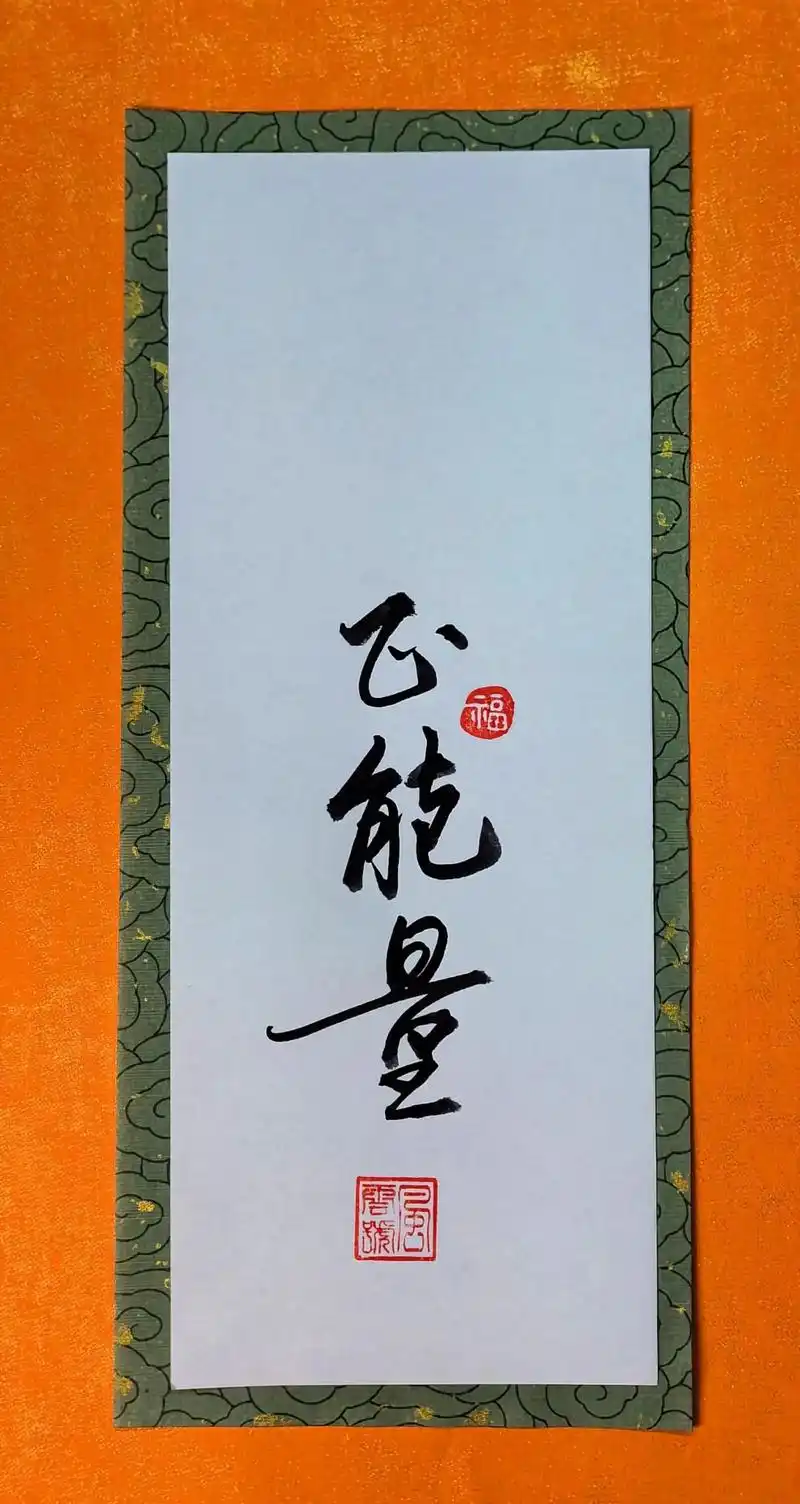 正能量
福